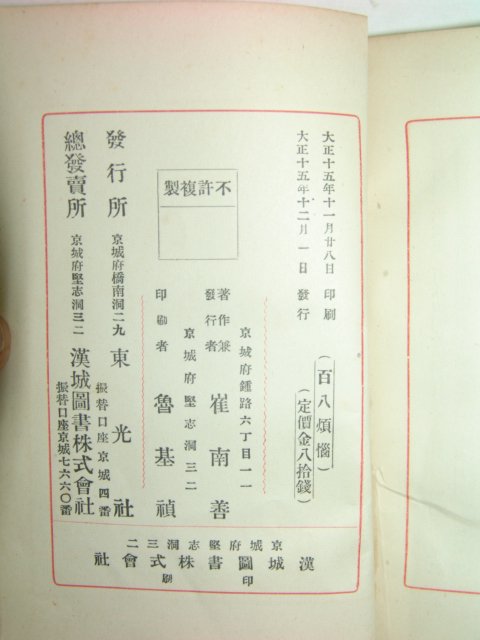 大正十五年十一月廿八日 印刷
大正十五年十二月一日 發行
(百八煩惱)
(定價金八拾錢)
不許複製
京城府鍾路六丁目一一
著作兼
發行者 崔南善
京城府堅志洞三二
印刷者 魯基禎
發行所 京城府橋南洞二九 東光社
振替口座京城四番
總發賣所 京城府堅志洞三二 漢城圖書株式會社
振替口座京城七六六〇番
京城府堅志洞三二
漢城圖書株式會社
印刷